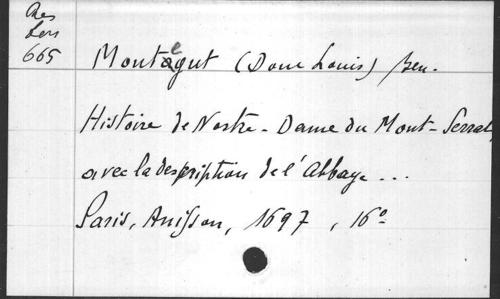 Res
Lon
665
Montégut (Dom Louis) Ben.
Histoire de Nostre-Dame du Mont-Serrat,
avec la description de l'Abbaye...
Paris, Anisson, 1697, 16°